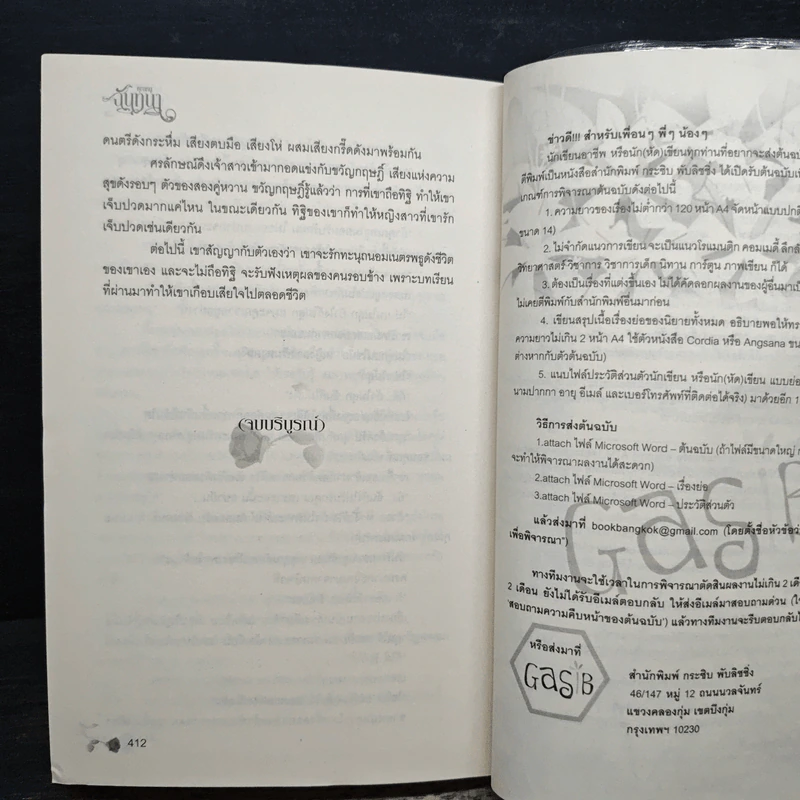 จันทนา
ดนตรีดังกระหึ่ม เสียงตบมือ เสียงโห่ ผสมเสียงกรี๊ดดังมาพร้อมกัน
ศรลักษณ์ดึงเจ้าสาวเข้ามากอดแข่งกับขวัญกฤษฎิ์ เสียงแห่งความ
สุขดังรอบๆ ตัวของสองคู่หวาน ขวัญกฤษฎิ์รู้แล้วว่า การที่เขาถือทิฐิ ทำให้เขา
เจ็บปวดมากแค่ไหน ในขณะเดียวกัน ทิฐิของเขาก็ทำให้หญิงสาวที่เขารัก
เจ็บปวดเช่นเดียวกัน
ต่อไปนี้ เขาสัญญากับตัวเองว่า เขาจะรักทะนุถนอมเนตรพธูดังชีวิต
ของเขาเอง และจะไม่ถือทิฐิ จะรับฟังเหตุผลของคนรอบข้าง เพราะบทเรียน
ที่ผ่านมาทำให้เขาเกือบเสียใจไปตลอดชีวิต
(จบบริบูรณ์)
412
ข่าวดี!!! สำหรับเพื่อนๆ พี่ๆ น้องๆ
นักเขียนอาชีพ หรือนัก(หัด)เขียนทุกท่านที่อยากจะส่งต้นฉบ
ตีพิมพ์เป็นหนังสือสำนักพิมพ์ กระซิบ พับลิชซิ่ง ได้เปิดรับต้นฉบับ
เกณฑ์การพิจารณาต้นฉบับดังต่อไปนี้
1. ความยาวของเรื่องไม่ต่ำกว่า 120 หน้า A4 จัดหน้าแบบปกติ
ขนาด 14)
2. ไม่จำกัดแนวการเขียน จะเป็นแนวโรแมนติก คอมเมดี้ ลึกลั
วิทยาศาสตร์-วิชาการ วิชาการเด็ก นิทาน การ์ตูน ภาพเขียน ก็ได้
3. ต้องเป็นเรื่องที่แต่งขึ้นเอง ไม่ได้คัดลอกผลงานของผู้อื่นมาเป็
ไม่เคยตีพิมพ์กับสำนักพิมพ์อื่นมาก่อน
4. เขียนสรุปเนื้อเรื่องย่อของนิยายทั้งหมด อธิบายพอให้ทร
ความยาวไม่เกิน 2 หน้า A4 ใช้ตัวหนังสือ Cordia หรือ Angsana ขน
ต่างหากกับตัวต้นฉบับ)
5. แนบไฟล์ประวัติส่วนตัวนักเขียน หรือนัก(หัด)เขียน แบบย่อ
นามปากกา อายุ อีเมล์ และเบอร์โทรศัพท์ที่ติดต่อได้จริง) มาด้วยอีก 1
วิธีการส่งต้นฉบับ
1.attach ไฟล์ Microsoft Word – ต้นฉบับ (ถ้าไฟล์มีขนาดใหญ่
จะทำให้พิจารณาผลงานได้สะดวก)
2.attach ไฟล์ Microsoft Word – เรื่องย่อ
3.attach ไฟล์ Microsoft Word – ประวัติส่วนตัว
แล้วส่งมาที่ bookbangkok@gmail.com (โดยตั้งชื่อหัวข้อว่
เพื่อพิจารณา")
ทางทีมงานจะใช้เวลาในการพิจารณาตัดสินผลงานไม่เกิน 2 เดื
2 เดือน ยังไม่ได้รับอีเมล์ตอบกลับ ให้ส่งอีเมล์มาสอบถามด่วน
'สอบถามความคืบหน้าของต้นฉบับ') แล้วทางทีมงานจะรีบตอบกลับ
หรือส่งมาที่
GASIB
สำนักพิมพ์ กระซิบ พับลิชซิ่ง
46/147 หมู่ 12 ถนนนวลจันทร์
แขวงคลองกุ่ม เขตบึงกุ่ม
กรุงเทพฯ 10230